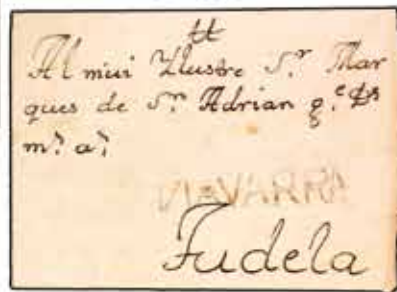 tt
Al mui Yllustre S.r Mar
ques de S.n Adrian q.e Ds
m.s a.s
NAVARRA
Tudela